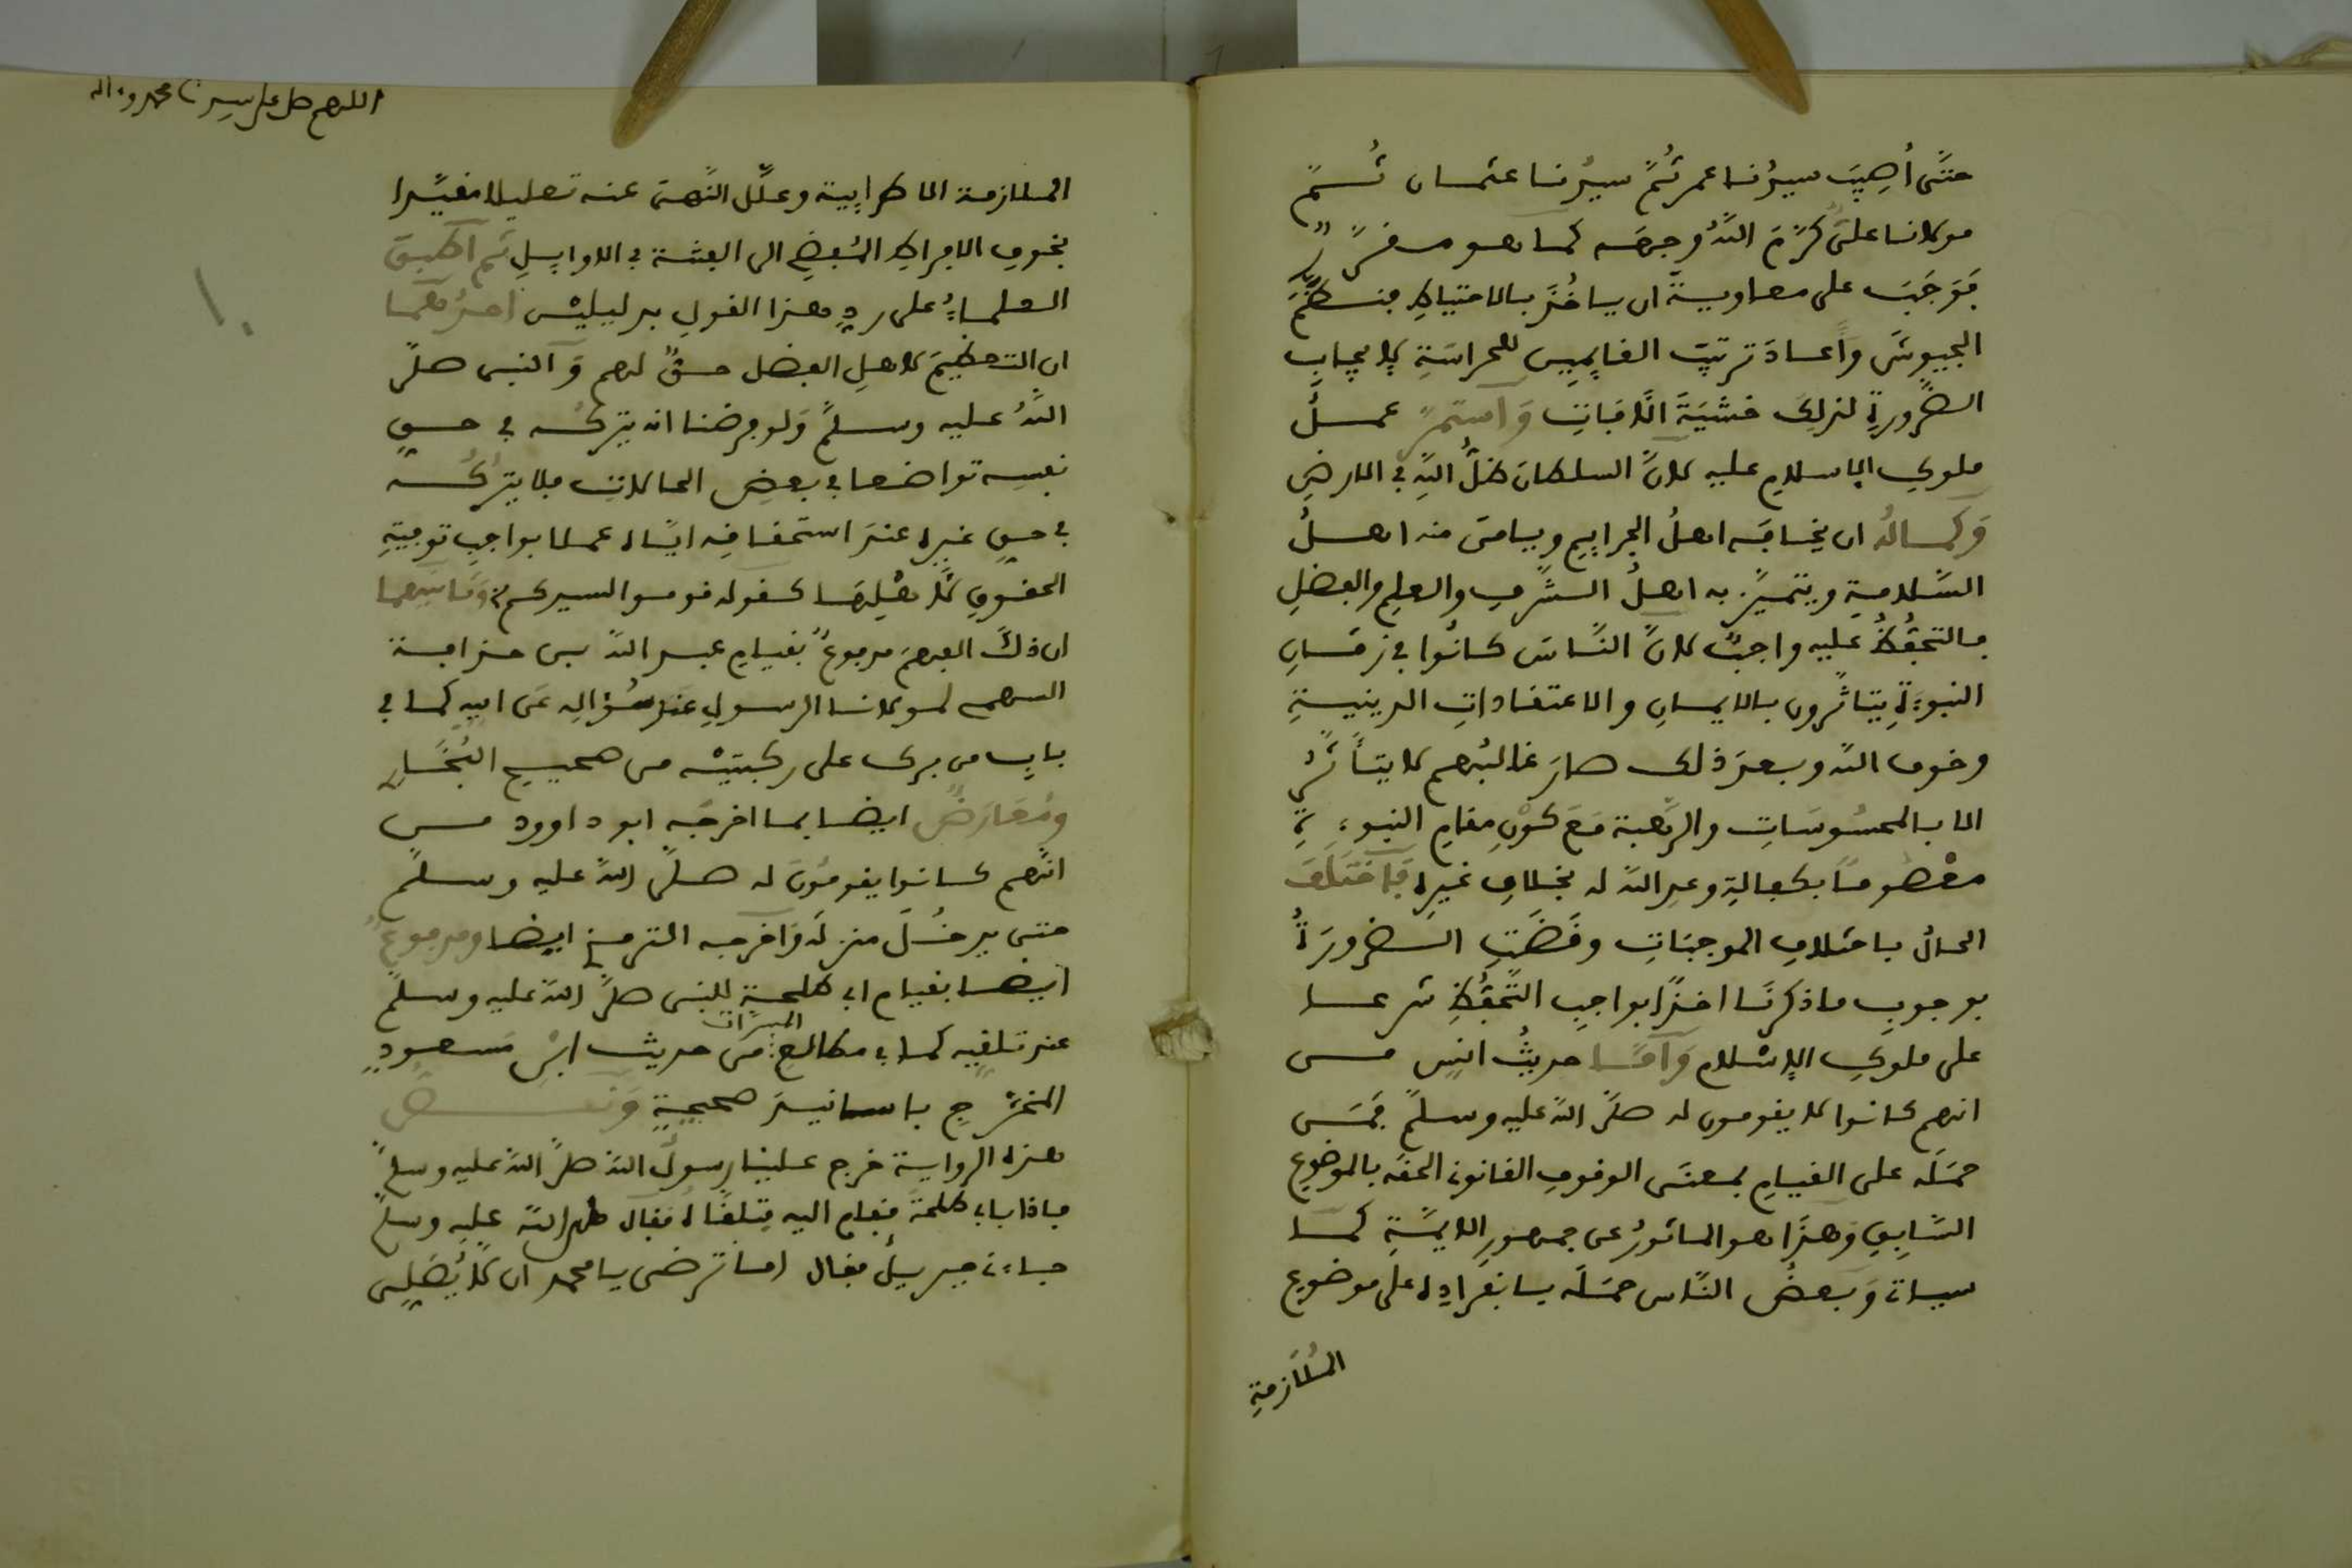 حتَّى أُصِيبَ سيدُنا عمر ثُمَّ سيدُنا عثمان ثُمَّ
مولانا علىّ كرَّمَ اللهُ وجهَه كما هو مقرَّرٌ
فَوَجَبَ على معاويةَ ان ياخُذَ بالاحتياطِ فنظَّم
الجيوشَ وأعادَ ترتيبَ القايمِين للحراسَةِ لإيجابِ
الضَّرورةِ لذلِكَ خشيَةَ الآفاتِ وَاستمرَّ عملُ
ملوكِ الإسلامِ عليه لانَّ السلطانَ ظلُّ اللهِ في الارضِ
وَكمالُه ان يخافَه اهلُ الجرايمِ ويامنَ منه اهلُ
السَّلامةِ ويتميَّز به اهلُ الشَّرفِ والعلمِ والفضلِ
فالتحفُّظُ عليه واجبٌ لانَّ النَّاسَ كانُوا في زمَانِ
النبوءَةِ يتاثَّرون بالايمانِ والاعتقاداتِ الدينيةِ
وخوف الله وبعدَ ذلك صارَ غالبُهم لا يتأثَّرُ
الا بالمحسُوسَاتِ والرَّهبة مَعَ كوْنِ مقامِ النبوءَةِ
معْصُوماً بكفالةِ وعدِ الله له بخلافِ غيرِه فَاختَلَفَ
الحالُ باختلافِ الموجبَاتِ وقَضَتِ الضرورَةُ
بوجوبِ ما ذكرنَا اخذًا بواجبِ التَّحفُّظِ شرعا
على ملوكِ الإسْلامِ وَأمَّا حديثُ انسٍ من
انهم كانوا لا يقومون له صلَّى اللهُ عليه وسلَّم فمَن
حمَلَه على القيامِ بمعنَى الوقوفِ القانونى الحقَه بالموضوعِ
السَّابقِ وَهذَا هو الماثورُ عن جمهورِ الايمَّةِ كما
سياتى وَبعضُ النَّاس حمَلَه بانفرادِه على موضوعِ
المُلَازمةِ
اللهم صل على سيدنا محمد وءاله
١٠
الملازمة الاطرابية وعلَّل النَّهىَ عنه تعليلا مقيَّدا
بخوفِ الافراطِ المُفضِى الى الفتنة في الاوايِلِ ثم أطبقَ
العلماءُ على ردِّ هذا القولِ بدليليْن احدُهُما
ان التعظيمَ لاهلِ الفضل حقٌّ لهم وَالنبى صلَّى
اللهُ عليه وسلَّم وَلو فرضنا انه يتركُه في حقِ
نفسِه تواضعا في بعضِ الحالاتِ فلا يترُكُه
في حقِ غيرِه عندَ استحقاقِه ايَّاه عملا بواجبِ توفيةِ
الحقوقِ لأهْلِهَا كقوله قوموا لسيدكم وَثَانيهما
ان ذلكَ الفهمَ مدفوعٌ بقيامِ عبد اللهِ بن حذافة
السهمى لمولانا الرسولِ عندَ سُؤالِه عَن ابيهِ كما في
باب من برك على ركبتيْه من صحيح البُخَارى
ومُعَارَضٌ ايضا بما اخرجَه ابو داوود من
انَّهم كانوا يقومُونَ له صلَّى اللهُ عليه وسلَّم
حتى يدخُلَ منزلَه وَاخرجه الترمذى ايضا ومدفوعٌ
أيضا بقيامِ ابى طلحةَ للنبى صلَّى اللهُ عليه وسلَّم
عند تلقيه كما في مطالعِ المسرَّات من حديث ابْنِ مسعودٍ
المخرَّجِ باسانيدَ صحيحةٍ وَنصُّ
هذه الرواية خرج علينا رسولُ اللهِ صلَّى اللهُ عليه وسلَّم
فاذا بابى طلحةَ فقام اليه فتلقَّاهُ فقال صلى الله عليه وسلَّم
جاءنى جبريلُ فقال اما ترضى يا محمد ان لا يُصَلِّىَ